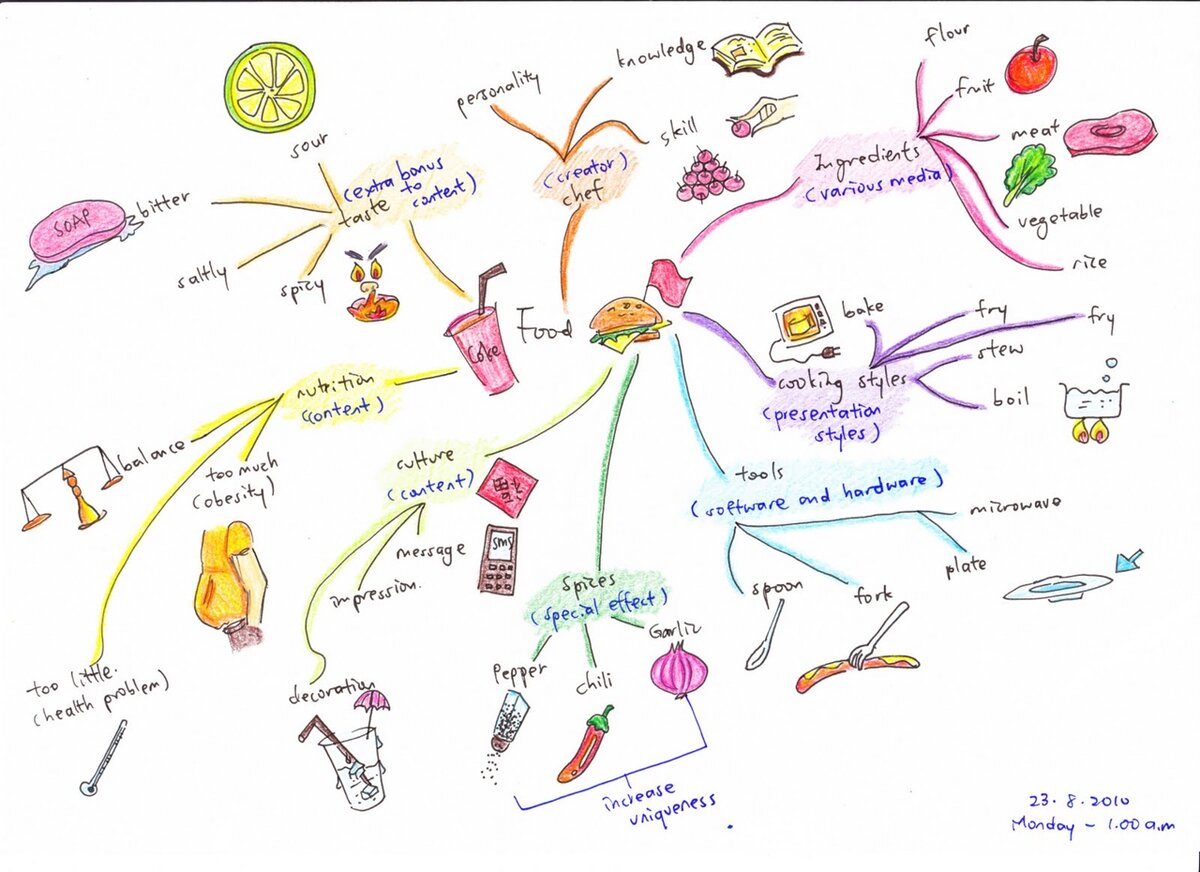 Food
Coke
personality
knowledge
skill
(creator)
chef
Ingredients
(various media)
flour
fruit
meat
vegetable
rice
cooking styles
(presentation
styles)
bake
fry
fry
stew
boil
tools
(software and hardware)
microwave
plate
fork
spoon
Spices
(special effect)
Pepper
chili
Garlic
increase
uniqueness
culture
(content)
message
SMS
impression.
decoration
nutrition
(content)
balance
too much
(obesity)
too little.
(health problem)
(extra bonus
to
content)
taste
sour
bitter
SOAP
saltly
spicy
23.8.2010
Monday - 1.00 a.m